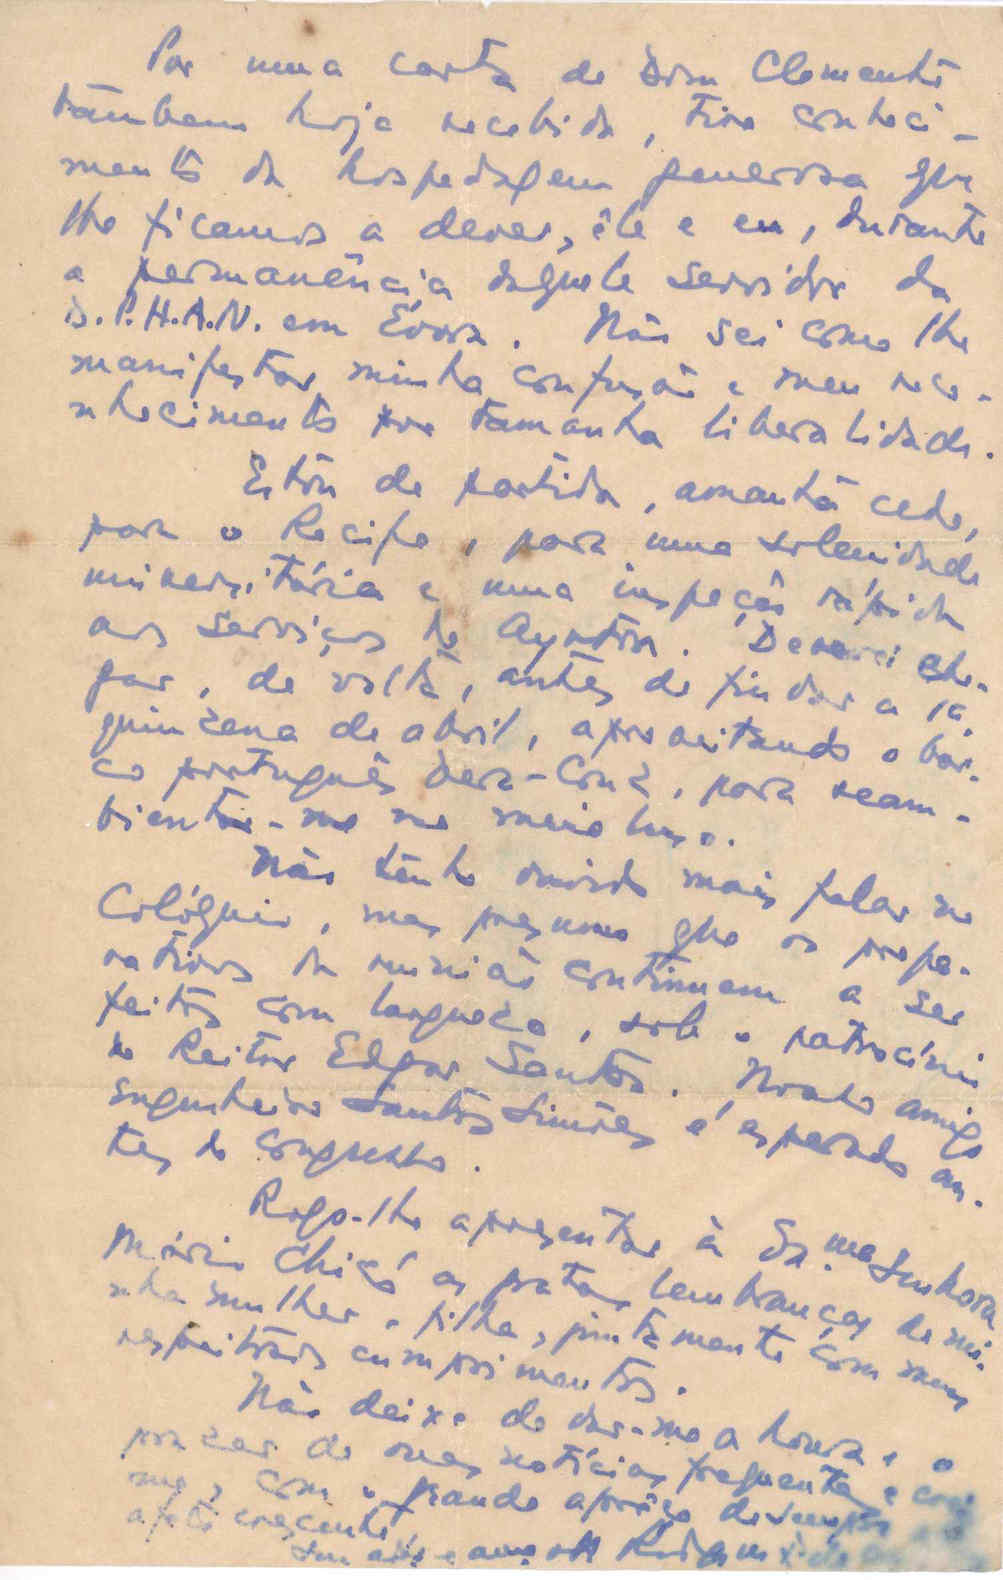 Por uma carta de Dom Clemente
tambem hoje recebida, tive conheci-
mento da hospedagem generosa que
lhe ficamos a dever, êle e eu, durante
a permanência daquele servidor da
D.P.H.A.N. em Évora. Não sei como lhe
manifestar minha confusão e meu reco-
nhecimento por tamanha liberalidade.
Estou de partida, amanhã cedo,
para o Recife, para uma solenidade
universitária e uma inspeção rápida
aos serviços de Ayrton. Deverei che-
gar, de volta, antes de findar a 1ª
quinzena de abril, aproveitando o bar-
co português Vera-Cruz, para ream-
bientar-me no meio luso.
Não tenho ouvido mais falar no
Colóquio, mas presumo que os prepa-
rativos da reunião continuem a ser
feitos com largueza, sob o patrocínio
do Reitor Edgar Santos. Nosso amigo
Engenheiro Santos Simões é esperado an-
tes do Congresso.
Rogo-lhe apresentar à Ex.ma Senhora
Mário Chicó as gratas lembranças de mi-
nha mulher e filha, juntamente com meus
respeitosos cumprimentos.
Não deixe de dar-me a honra e o
prazer de suas notícias frequentes e
me, com o grande aprêço de sempre
afeto crescente,
seu adm. e amº. Rodrigo